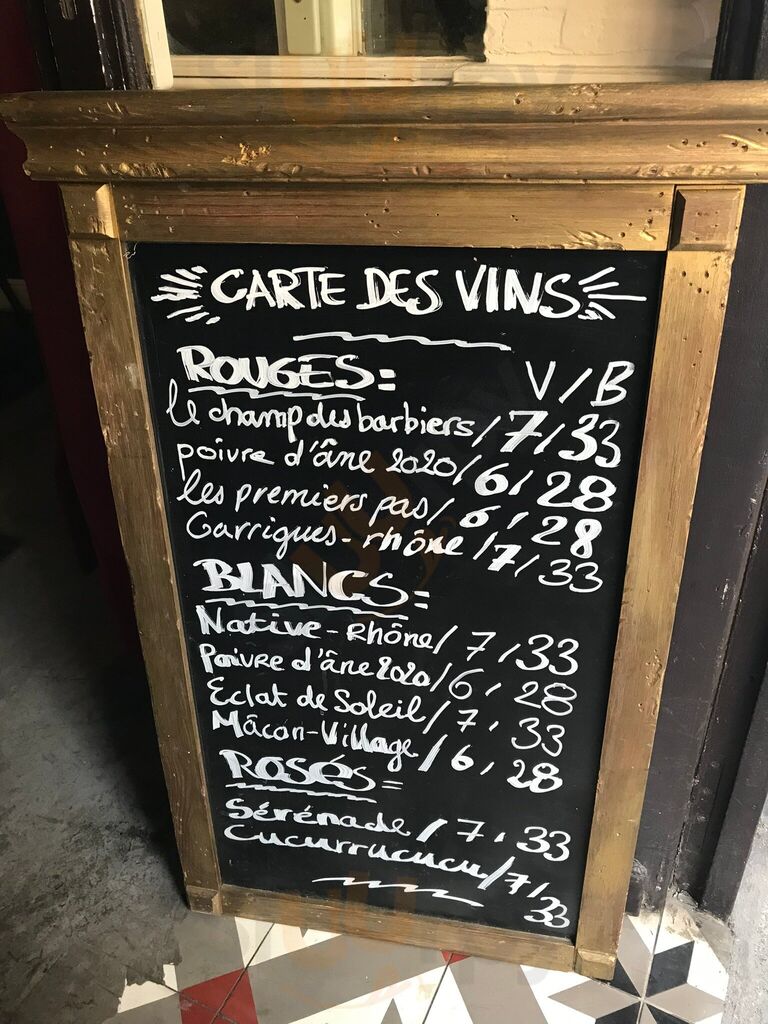 CARTE DES VINS
ROUGES= V/B
le champ des barbiers/7/33
poivre d'âne 2020/6/28
les premiers pas/6/28
Garrigues-rhône/7/33
BLANCS=
Native-Rhône/7/33
Poivre d'âne 2020/6/28
Eclat de Soleil/7/33
Mâcon-Village/6/28
ROSÉS=
Sérénade/7/33
Cucurrucucu/7/33